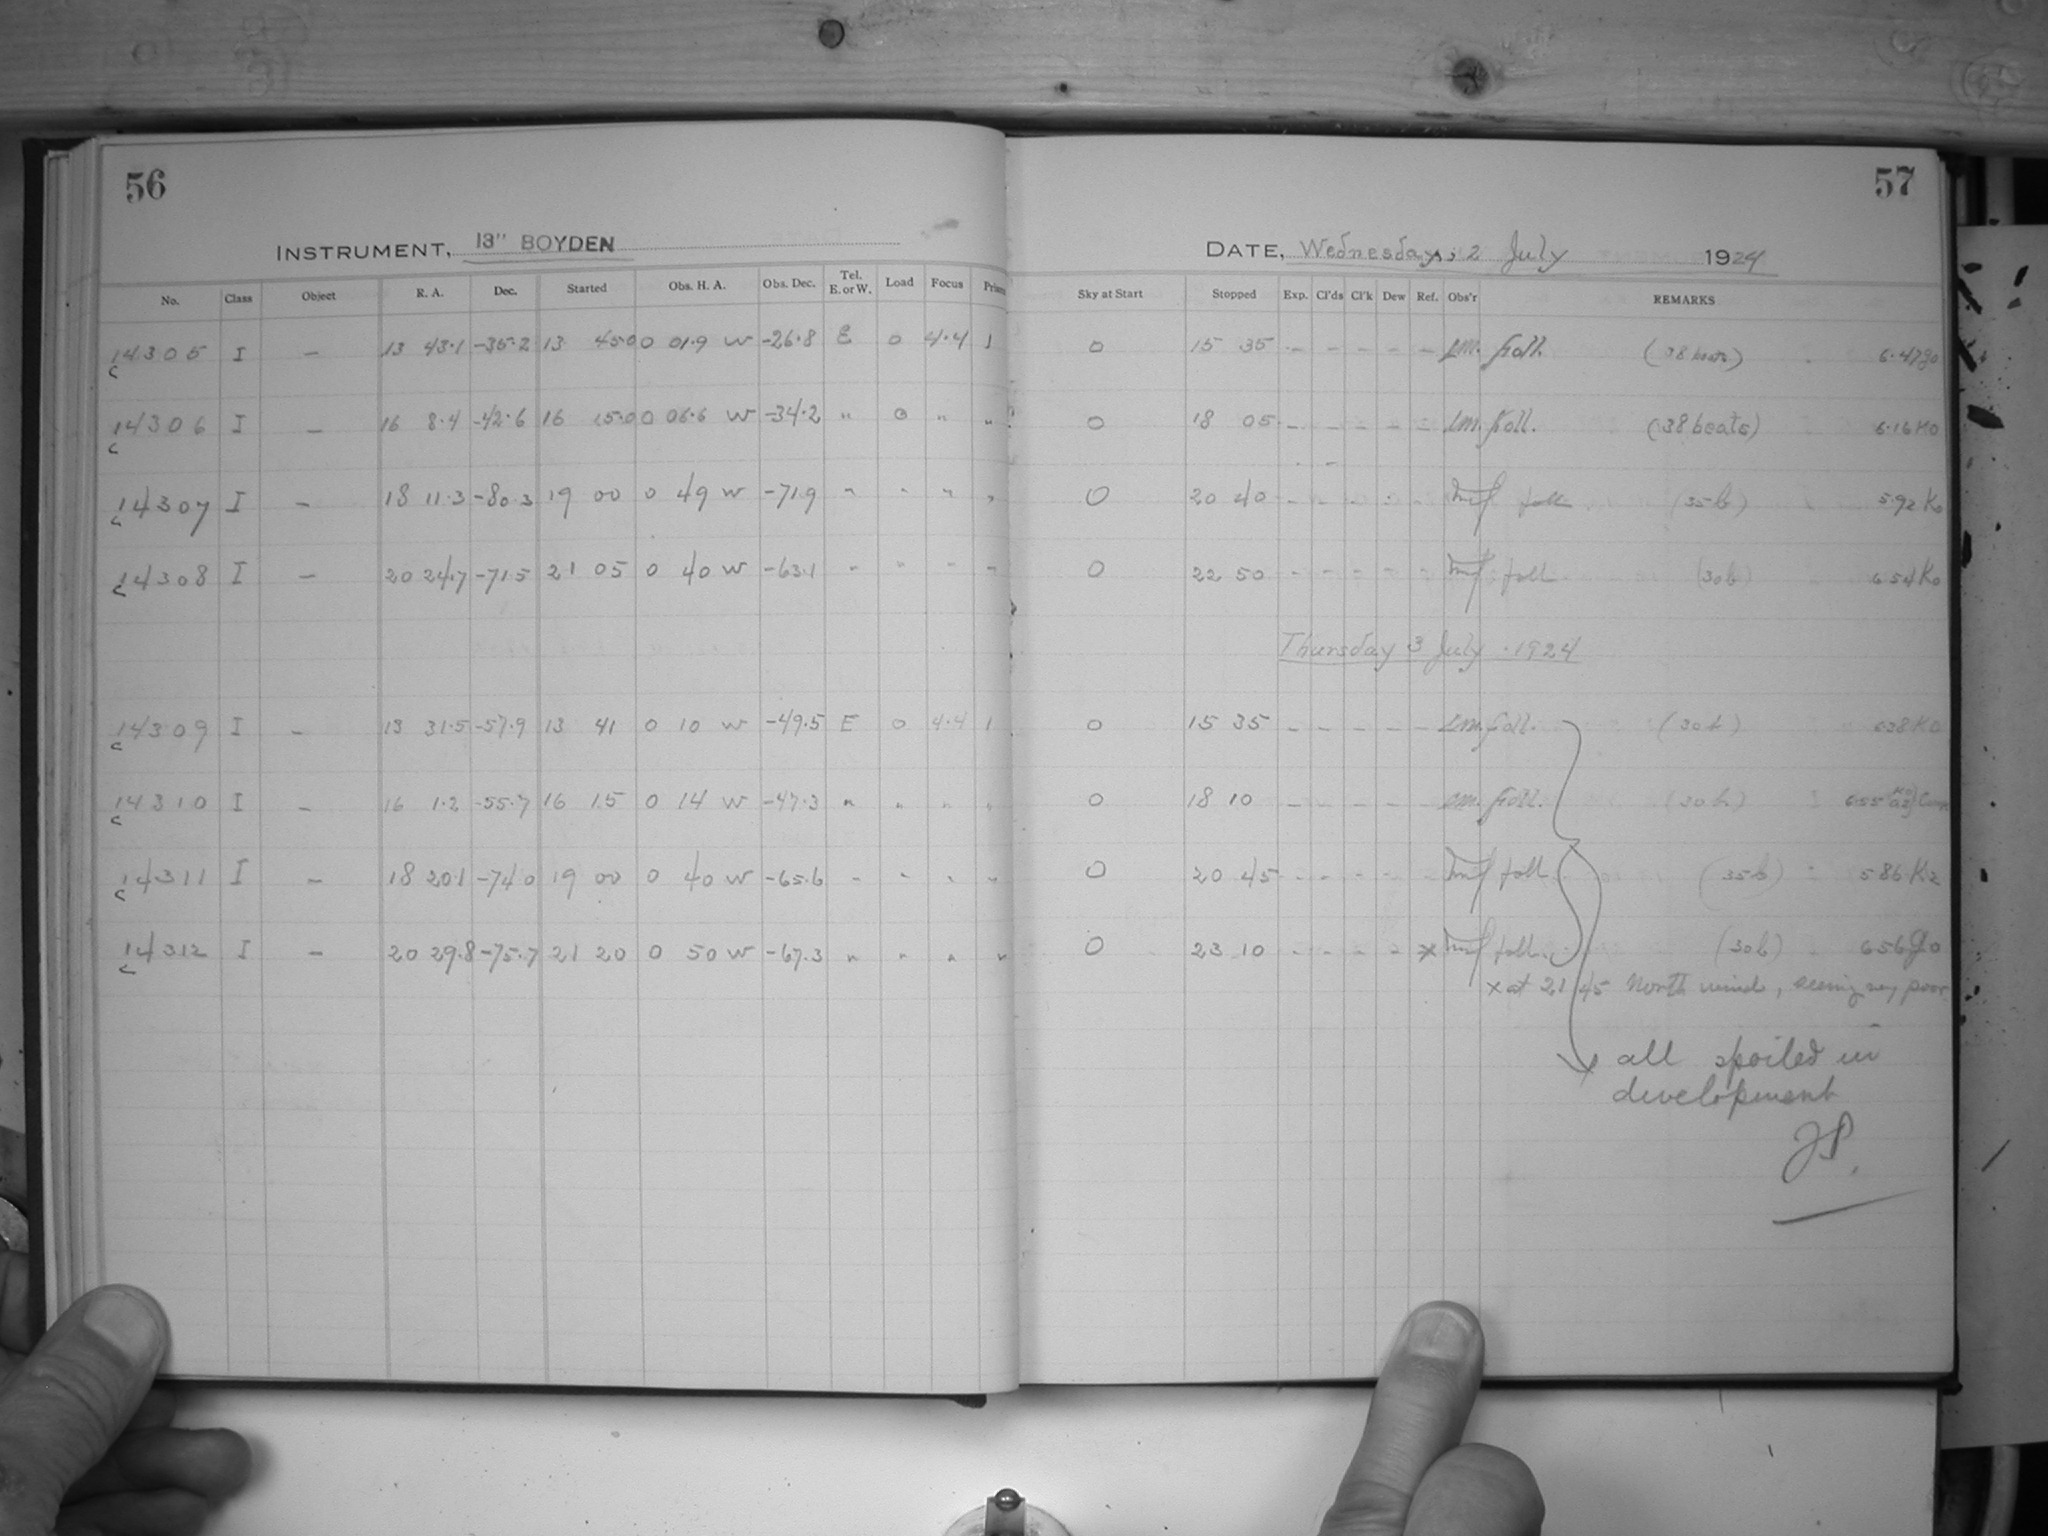 56
INSTRUMENT, 13" BOYDEN
No. Class Object R. A. Dec. Started Obs. H. A. Obs. Dec. Tel. E. or W. Load Focus Prism
14305 I – 13 43.1 -35.2 13 45.0 0 01.9 W -26.8 E 0 4.4 1
c
14306 I – 16 8.4 -42.6 16 15.0 0 06.6 W -34.2 " 0 " "
c
14307 I – 18 11.3 -80.3 19 00 0 49 W -71.9 " " " "
c
14308 I – 20 24.7 -71.5 21 05 0 40 W -63.1 " " " "
c
14309 I – 13 31.5 -57.9 13 41 0 10 W -49.5 E 0 4.4 1
c
14310 I – 16 1.2 -55.7 16 15 0 14 W -47.3 " " " "
c
14311 I – 18 20.1 -74.0 19 00 0 40 W -65.6 " " " "
c
14312 I – 20 29.8 -75.7 21 20 0 50 W -67.3 " " " "
c
57
DATE, Wednesday, 2 July 1924
Sky at Start Stopped Exp. Cl'ds Cl'k Dew Ref. Obs'r REMARKS
0 15 35 – – – – – LM. foll. (38 beats)
0 18 05 – – – – – LM. foll. (38 beats) 6.16 K0
0 20 40 – – – – – foll (35b) 5.92 K0
0 22 50 – – – – – foll (30b) 6.54 K0
Thursday 3 July . 1924
0 15 35 – – – – – LM. foll. (30b) 6.38 K0
0 18 10 – – – – – LM. foll. (30b) 6.55
0 20 45 – – – – – foll (35b) 5.86 K2
0 23 10 – – – – x foll. (30b) 6.56 g0
x at 21 45 North wind, seeing very poor
all spoiled in
development
JP.